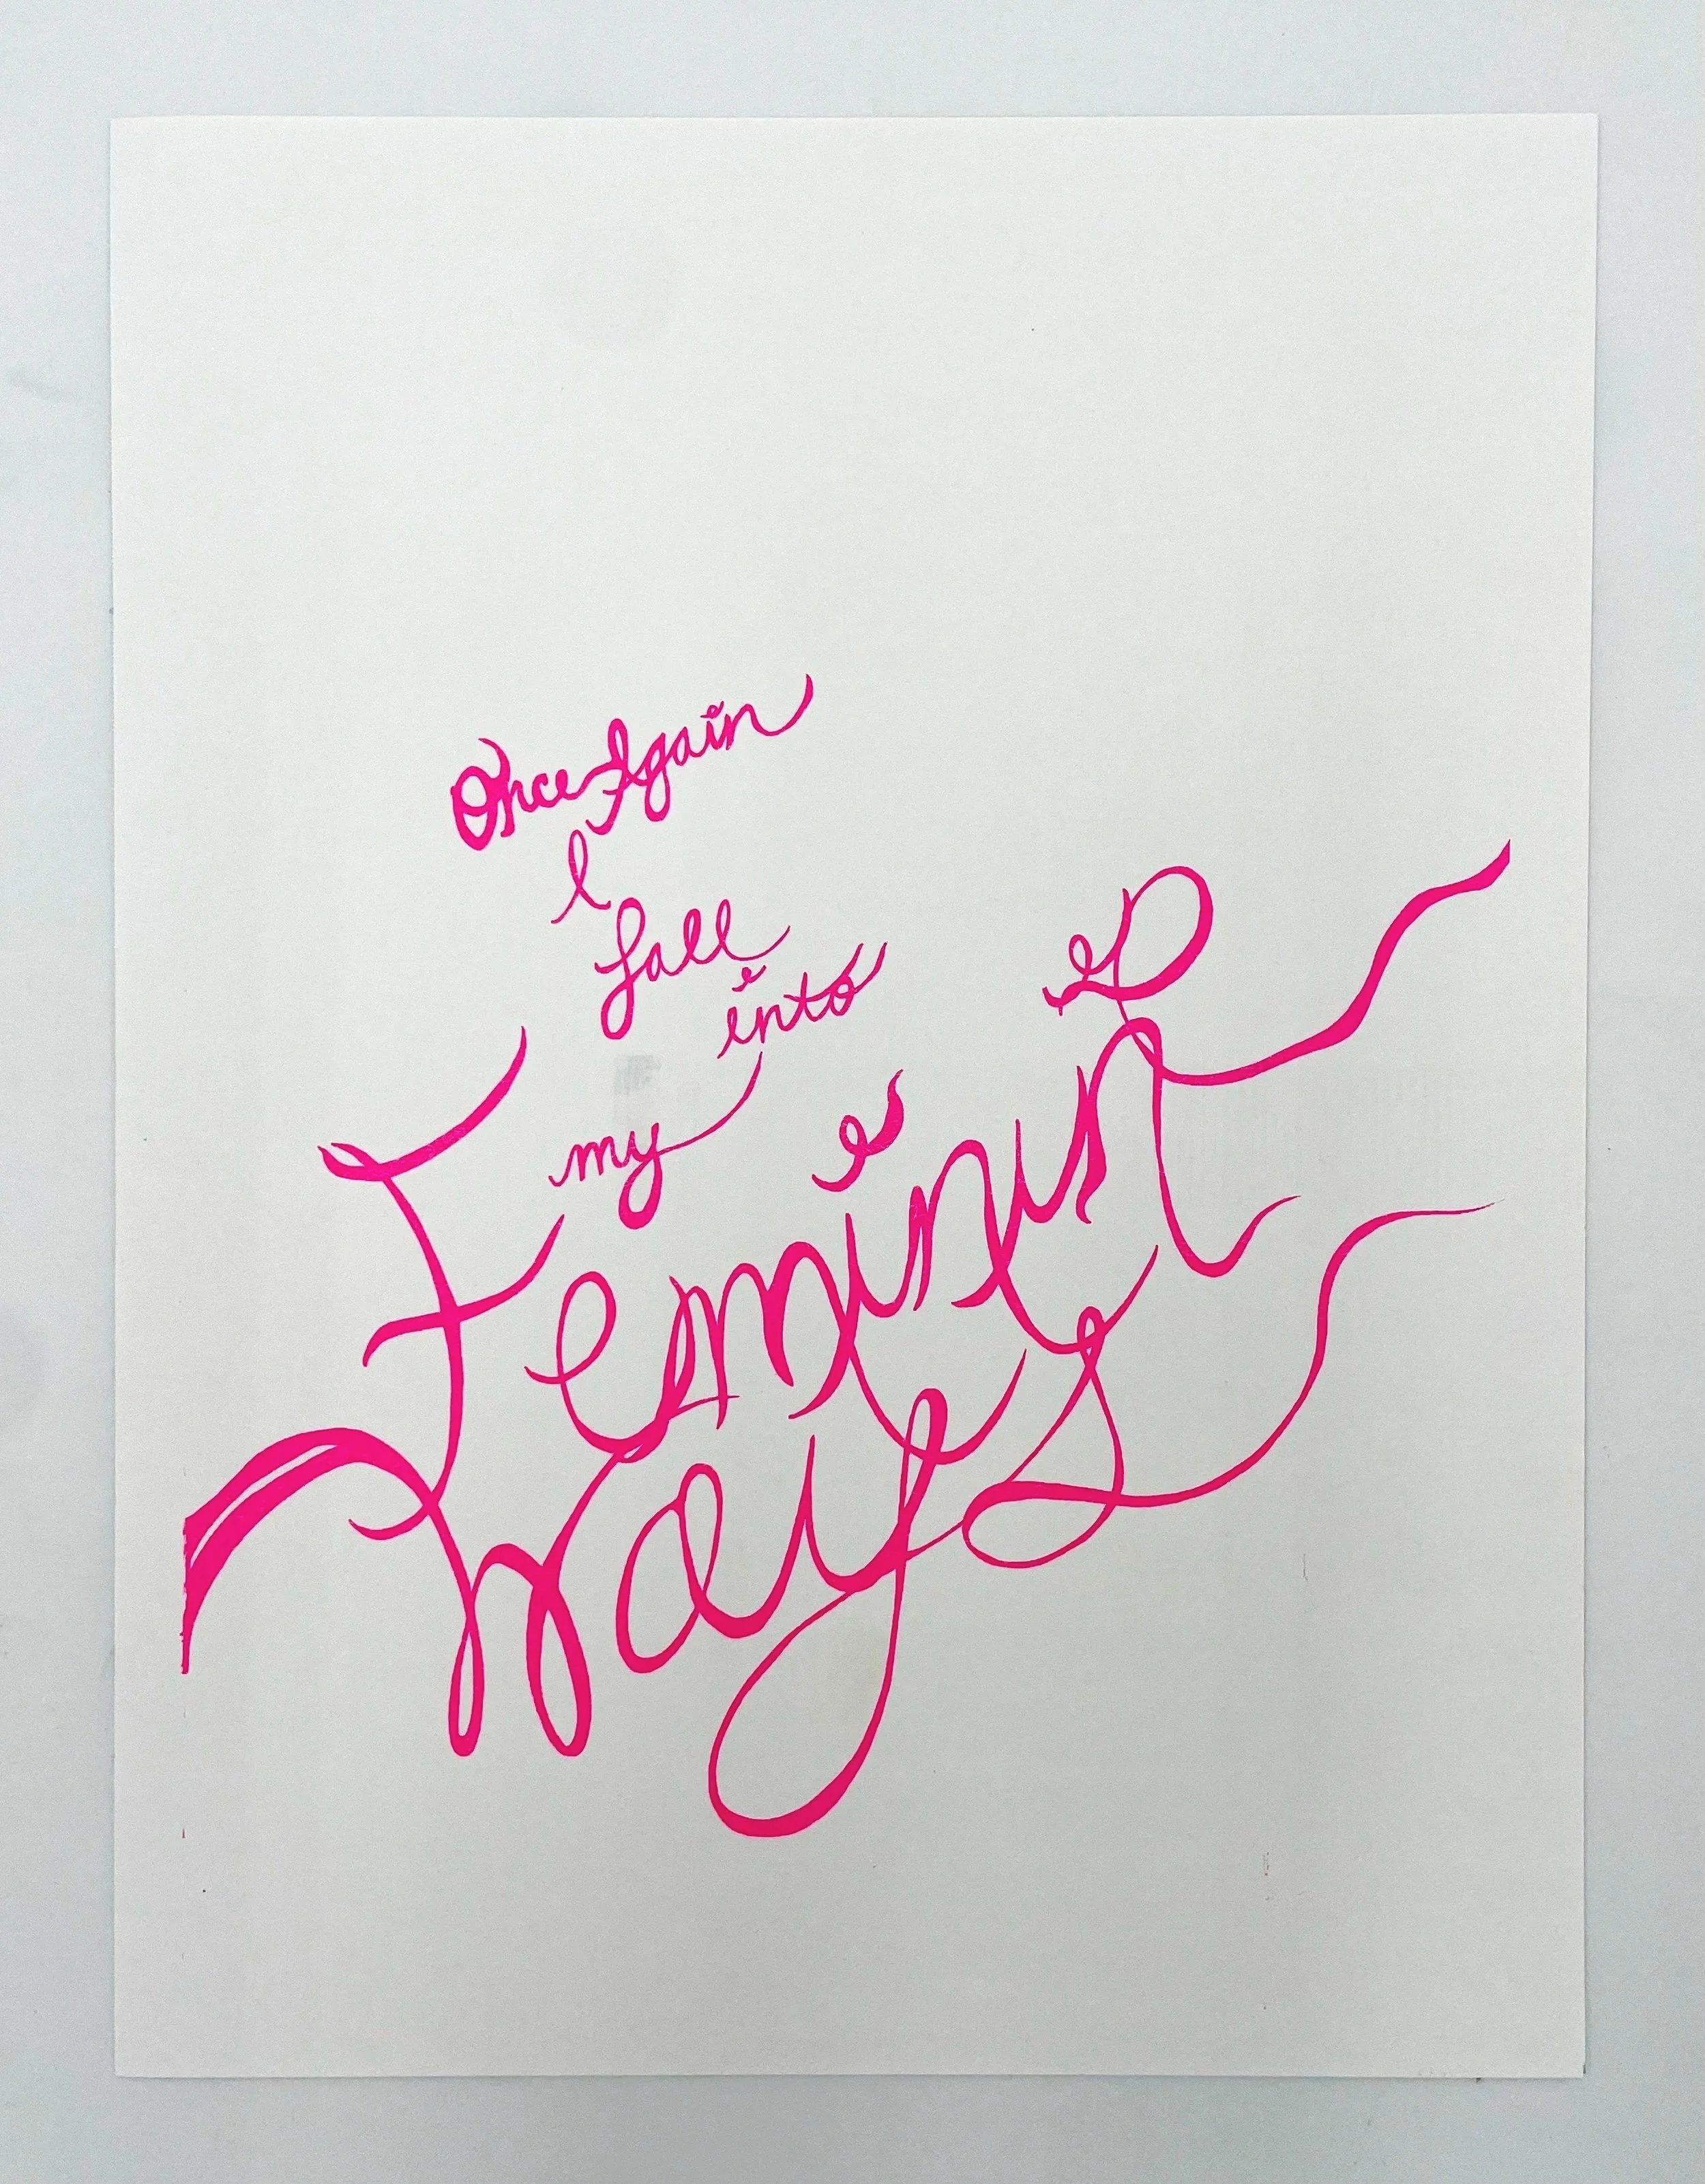 Once Again
I
fall
into
my
Feminine
Ways